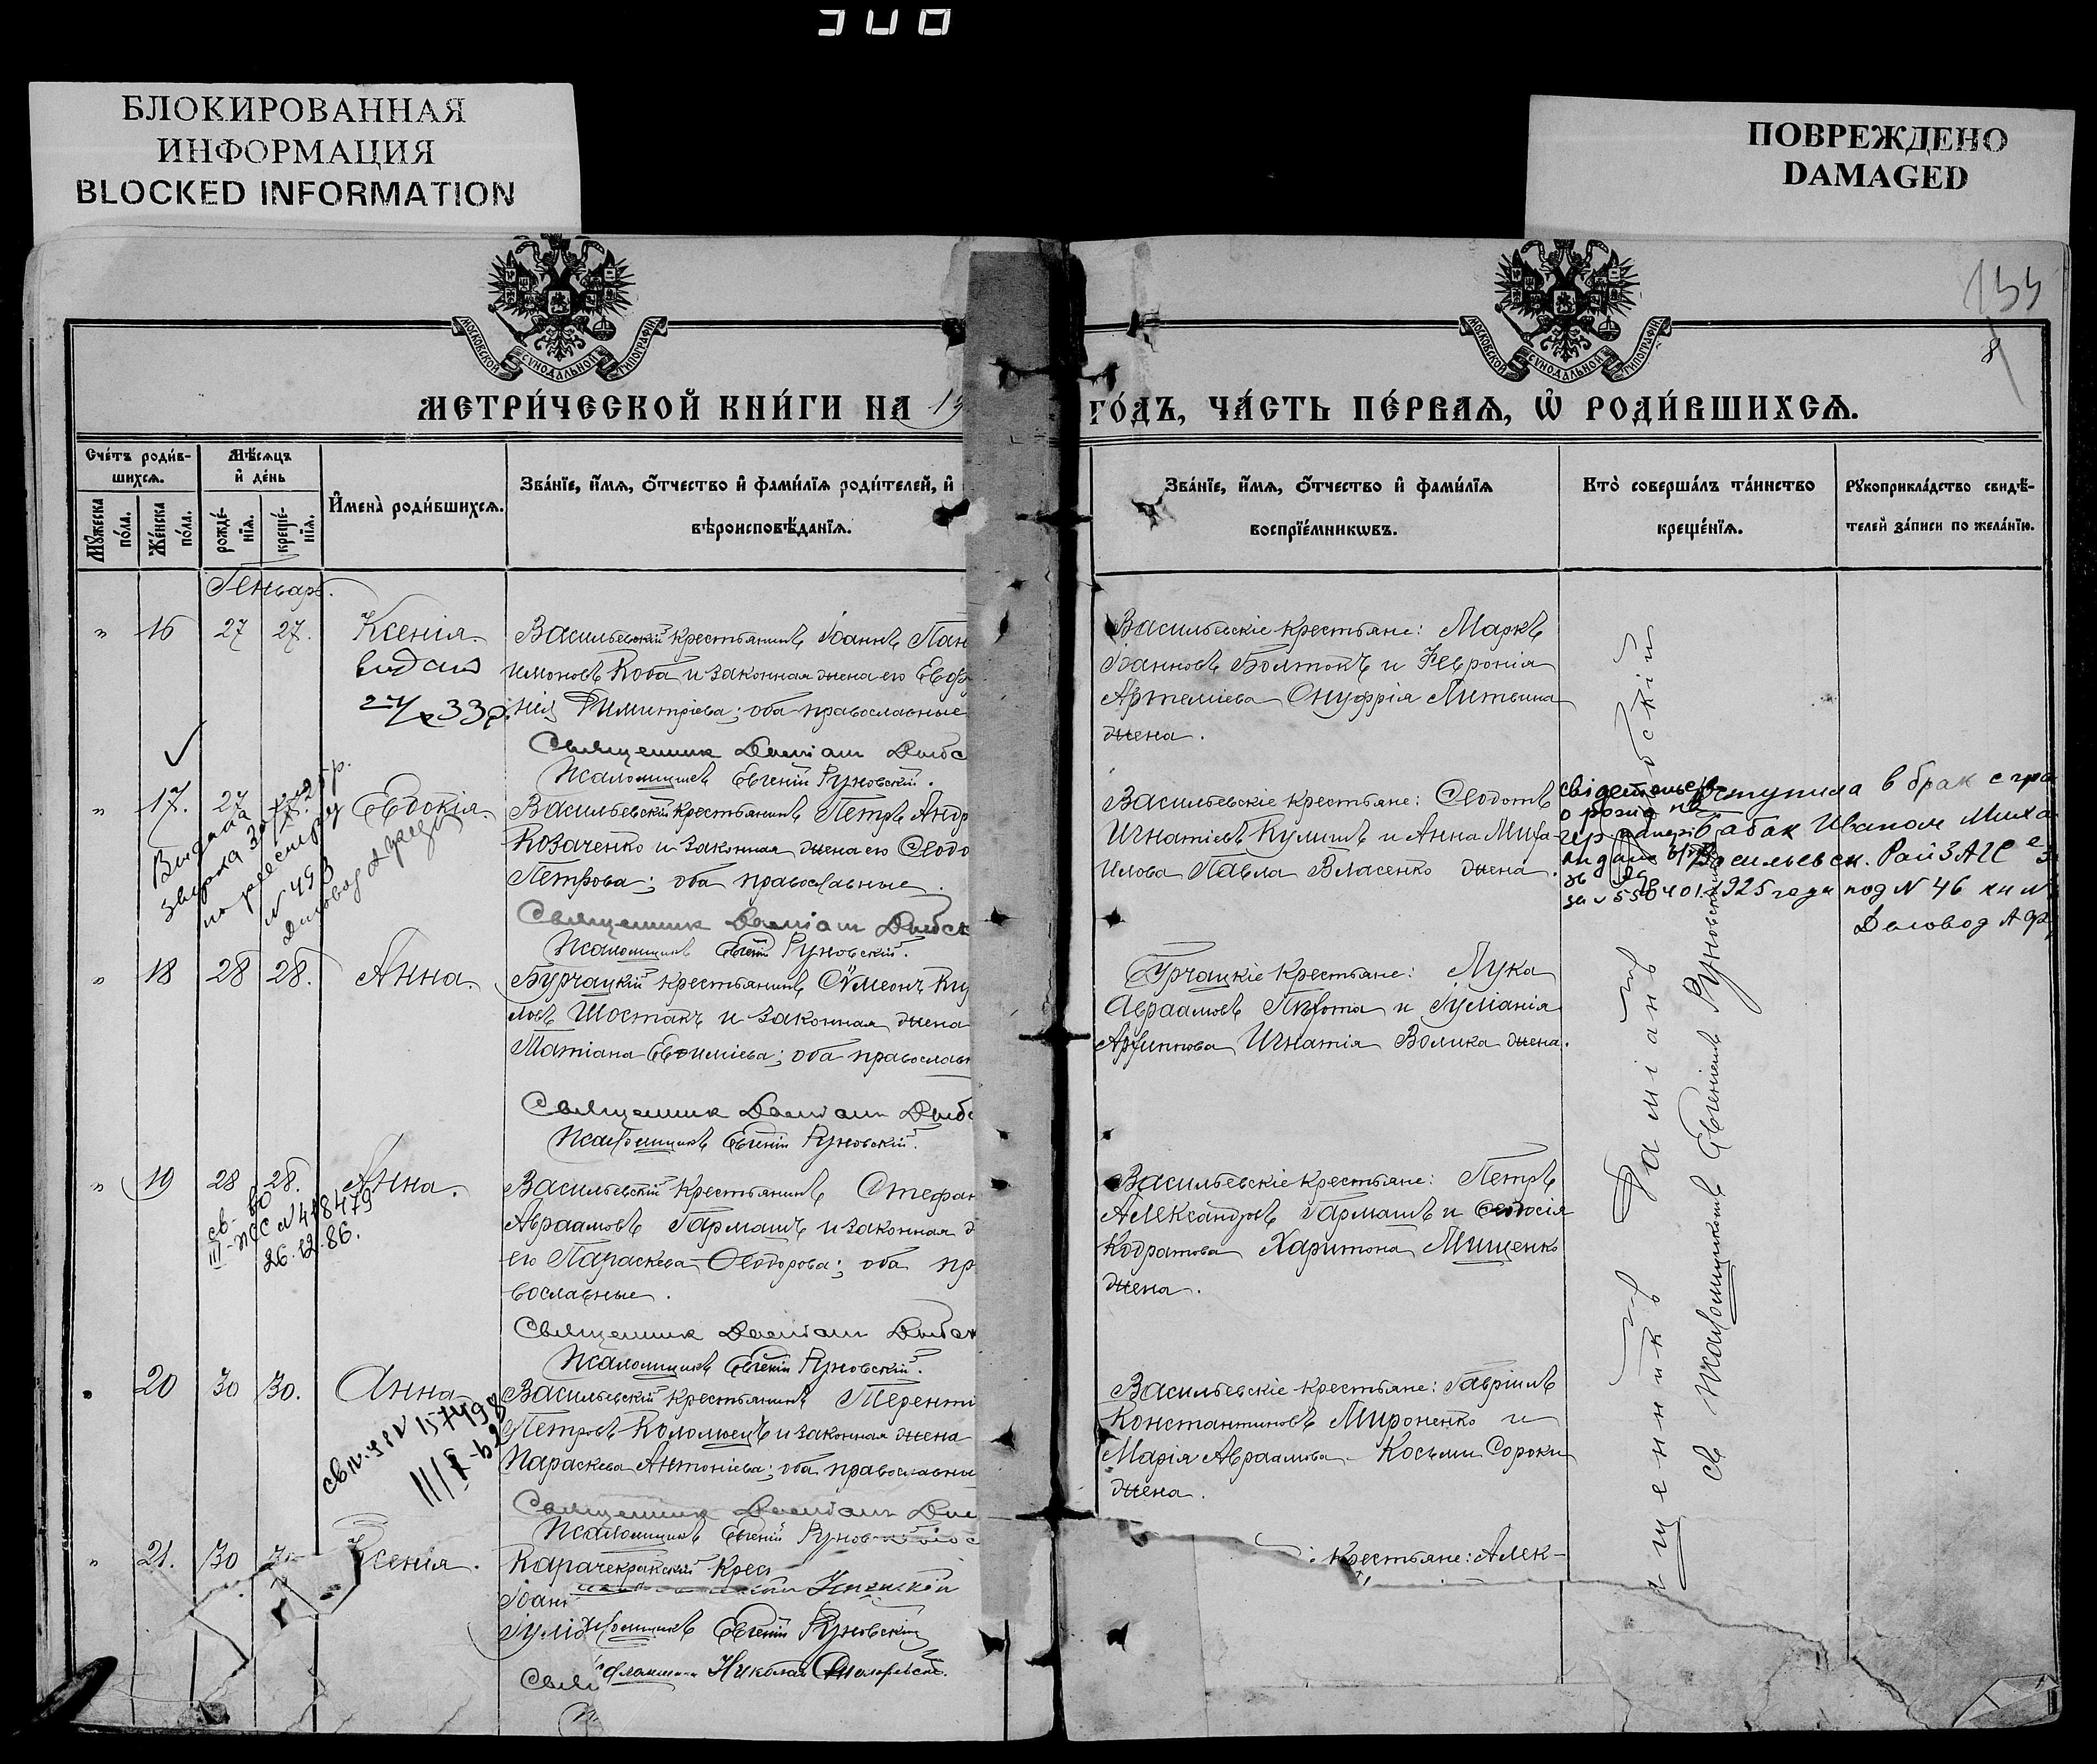 БЛОКИРОВАННАЯ
ИНФОРМАЦИЯ
BLOCKED INFORMATION
ПОВРЕЖДЕНО
DAMAGED
МОСКОВСКОЙ СѴНОДАЛЬНОЙ ТИПОГРАФІИ
МОСКОВСКОЙ СѴНОДАЛЬНОЙ ТИПОГРАФІИ
155
8
МЕТРИ́ЧЕСКОЙ КНИ́ГИ НА 19
ГО́ДЪ, ЧА́СТЬ ПЕ́РВАѦ, Ѡ҆ РОДИ́ВШИХСѦ.
Сче́тъ роди́в-
шихсѧ.
Мѣ́сѧцъ
и҆ де́нь
Мꙋ́жеска по́ла.
Же́нска по́ла.
рожде́-нїѧ.
креще́-нїѧ.
И҆мена̀ роди́вшихсѧ.
Зва́нїе, и҆́мѧ, ѻ҆́тчество и҆ фами́лїѧ роди́телей, и҆
вѣроисповѣ́данїѧ.
Зва́нїе, и҆́мѧ, ѻ҆́тчество и҆ фами́лїѧ
воспрїе́мникѡвъ.
Кто̀ соверша́лъ та́инство
креще́нїѧ.
Рꙋкоприкла́дство свидѣ́-
телей за́писи по жела́нїю.
Генварь.
" 16 27 27. Ксенія.
видано
27/X 33 р.
Васильевскій крестьянинъ Іоаннъ Пан
имоновъ Коба и законная жена его Евф
нія Димитріева; оба православные
Священник Даміан Дидс
Псаломщикъ Евгеній Руновскій.
Васильевскіе крестьяне: Маркъ
Іоанновъ Болтокъ и Февронія
Артеміева Онуфрія Литвина
жена.
" 17. 27 27. Евдокія.
Видана
по реестру
N 493
Васильевскій крестьянинъ Петръ Андр
Козаченко и законная жена его Ѳеодо
Петрова; оба православные.
Священник Даміан Дидск
Псаломщикъ Евгеній Руновскій.
Васильевскіе крестьяне: Ѳеодотъ
Игнатіевъ Кулишъ и Анна Миха-
илова Павла Власенко жена.
Вступила в брак с гра
Бабак Иваном Миха
Васильевск. Рай ЗАГС е
1925 года под N 46
Деловод
" 18 28 28. Анна.
Бурчацкій крестьянинъ Сѵмеонъ Ки
ловъ Шостакъ и законная жена
Татіана Евѳиміева; оба православн
Священник Даміан Дидс
Псаломщикъ Евгеній Руновскій.
Бурчацкіе крестьяне: Лука
Авраамовъ Пѣхота и Іуліанія
Архиппова Игнатія Волика жена.
" 19 28 28. Анна.
св-во
III-ПС N 448479
26.12.86.
Васильевскій крестьянинъ Стефан
Авраамовъ Гармашъ и законная ж
его Параскева Ѳеодорова; оба пр
вославные.
Священник Даміан Дидск
Псаломщикъ Евгеній Руновскій.
Васильевскіе крестьяне: Петръ
Александровъ Гармашъ и Ѳеодосія
Кодратова Харитона Мищенко
жена.
" 20 30 30. Анна
Васильевскій крестьянинъ Теренті
Петровъ Коломоецъ и законная жена
Параскева Антоніева; оба православны
Священник Даміан Дид
Псаломщикъ Евгеній Рунов
Васильевскіе крестьяне: Гавріилъ
Константиновъ Мироненко и
Марія Авраамова Косьмы Сороки
жена.
" 21. 30 Ксенія.
Карачекракскій крес
Іоанн
Іуліа
Псаломщикъ Евгеній Руновскій
Крестьяне: Алек-
щенникъ Даміанъ
съ псаломщикомъ Евгеніемъ Руновскимъ